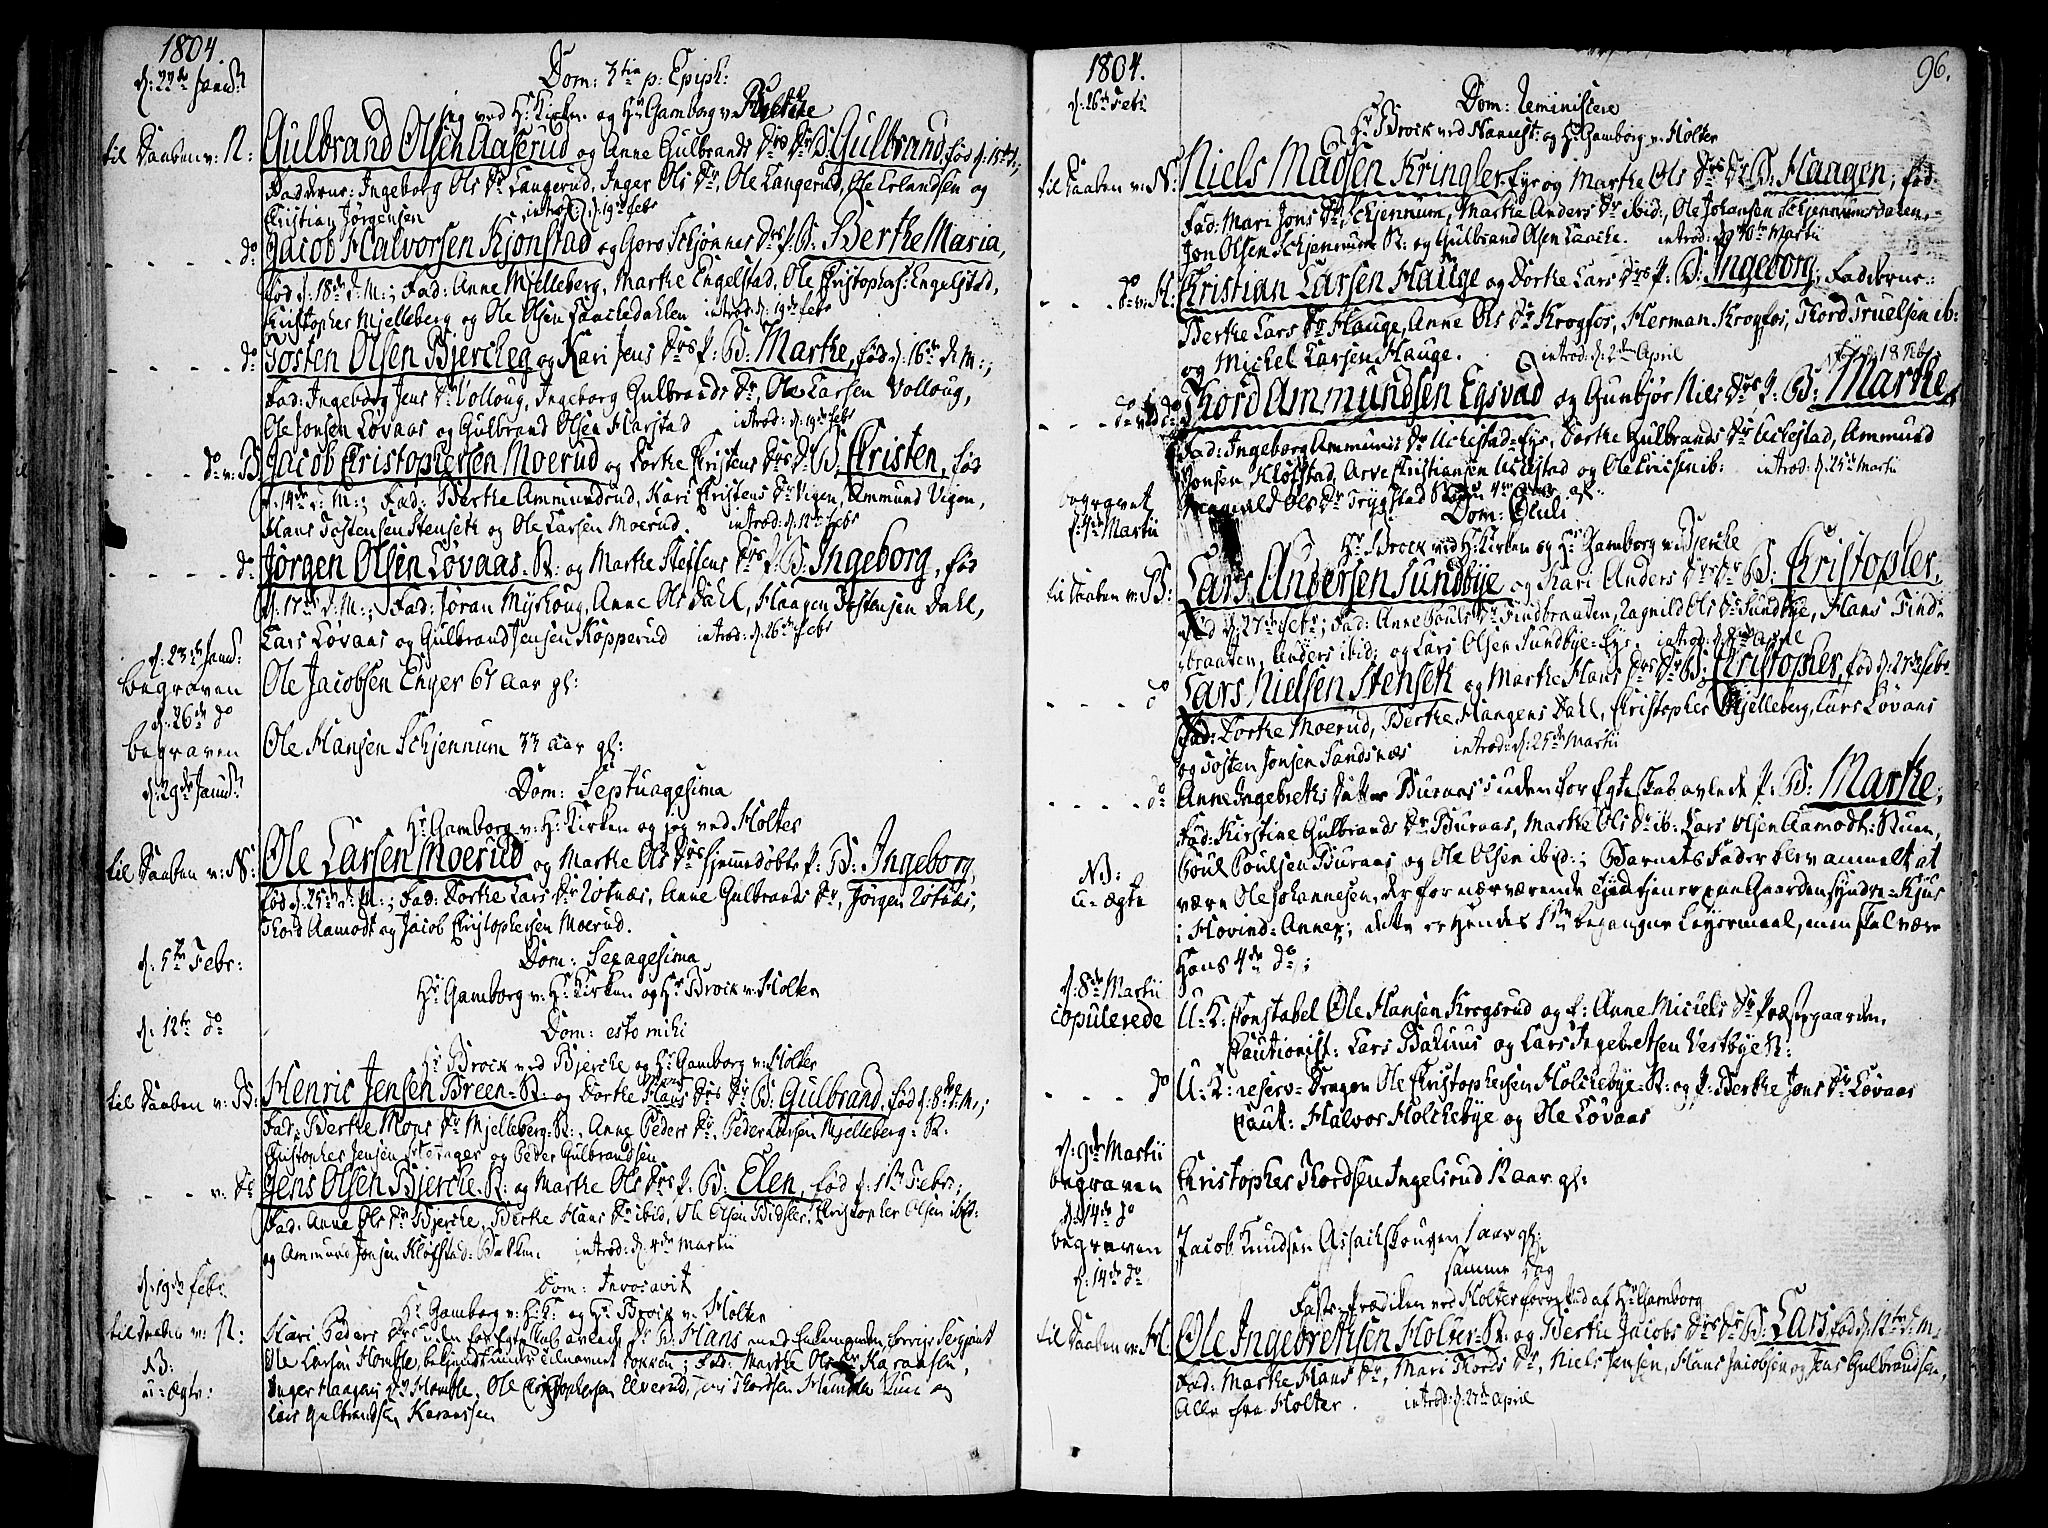 1804
d: 22de Janu:
Dom: 3tia p: Epiph:
jeg ved H: Kirken og Hr Gamborg v: Bjercke
til Daaben v: N: Gulbrand Olsen Aaserud og Anne Gulbrands Drs Dr B: Gulbrand, fød d: 15de;
Fadderne: Ingeborg Ols Dr Langerud, Inger Ols Dr, Ole Langerud, Ole Erlandsen og
Christian Jørgensen introd: d: 19de Febr
do Jacob Halvorsen Kjønstad og Goro Schjønnes Drs P: B: Berthe Maria,
fød d: 18de d: M:; Fad: Anne Mjelleberg, Marthe Engelstad, Ole Christophers: Engelstad,
Christopher Mjelleberg og Ole Olsen Haachedahlen introd: d: 19de Febr
do Tosten Olsen Bjercheg og Kari Jens Drs P: B: Marthe, fød d: 16de d: M:;
Fad: Ingeborg Jens Dr Volloug, Ingeborg Gulbrands Dr, Ole Larsen Volloug,
Ole Jonsen Løvaas og Gulbrand Olsen Harstad introd: d: 19de Febr
do v: B Jacob Christophersen Moerud og Dorthe Christens Drs D: B: Christen, fød
d: 14de d: M:; Fad: Berthe Ammundrud, Kari Christens Dr Vigen, Ammund Vigen,
Hans Tostensen Stenseth og Ole Larsen Moerud. introd: d: 12te Febr
do Jørgen Olsen Løvaas-St: og Marthe Steffens Drs P: B: Ingeborg, fød
d: 17de d: M:; Fad: Jøran Myhroug, Anne Ols Dahl, Haagen Tostensen Dahl,
Lars Løvaas og Gulbrand Jensen Kopperud introd: d: 26de Febr
d: 23de Janu:
begraven Ole Jacobsen Enger 67 Aar gl:
d: 26de do
begraven Ole Hansen Schjennum 33 Aar gl:
d: 29de Janu:
Dom: Septuagesima
Hr Gamborg v: H: Kirken og jeg ved Holter
til Daaben v: N: Ole Larsen Moerud og Marthe Ols Drs hjemmedøbte P: B: Ingeborg,
fød d: 25de d: M:; Fad: Dorthe Lars Dr Rotnæs, Anne Gulbrands Dr, Jørgen Rotnæs,
Thord Aamodt og Jacob Christophersen Moerud.
d: 5te Febr:
Dom: Sexagesima
Hr Gamborg v: H: Kirken og Hr Brock v: Holter
d: 12te do
Dom: esto mihi
Hr Brock ved Bjercke og Hr Gamborg v: Holter
til Daaben v: B: Henric Jensen Breen-St: og Dorthe Hans Drs Dr B: Gulbrand, fød d: 8de d: M:;
Fad: Berthe Mons Dr Mjelleberg-St:, Anne Peders Dr, Peder Larsen Mjelleberg: St:
Christopher Jensen og Peder Gulbrandsen
v: do Jens Olsen Bjercke-St: og Marthe Ols Drs P: B: Elen, fød d: 11te Febr:;
Fad: Anne Ols Dr Bjercke, Berthe Hans Dr ibid, Ole Olsen, Christopher Olsen ibid:
og Ammund Jonsen Kløfstad: Bakken. introd: d: 4de Martii
d: 19de Febr:
Dom: Invocavit
Hr Gamborg v: H: K: og Hr Brock v: Holter
til Daaben v: N: Kari Peders Drs uden for Egteskab avlede Dr B: Hans med Enkemanden, forrige Sergiant
NB: Ole Larsen Homble, bekjendt under Tilnavnet; Fad: Marthe Ols Dr Karaasen,
u-Ægte: Inger Haagens Dr Homble, Ole Christophersen Elverud, Thordsen og
Lars Gulbrandsen Karaassen
96.
1804.
d: 26de Febr
Dom: Reminiscere
Hr Brock ved Nannest: og Hr Gamborg v: Holter
til Daaben v: N: Niels Madsen Kringler-Eye og Marthe Ols Drs Dr B: Haagen; fød
Fad: Mari Jons Dr Schjennum, Marthe Anders Dr ibid:, Ole Johansen Schjennumsdalen,
Jon Olsen Schjennum St: og Gulbrand Olsen Haacke. introd: d: Martii
do v: H: Christian Larsen Hauge og Dorthe Lars Drs P: B: Ingeborg; Fadderne:
Berthe Lars Dr Hauge, Anne Ols Dr Krogfos, Herman Krogfos, Thord Truelsen ib:
og Michel Larsen Hauge. introd: d: 2de April
fød d: 18 Feb
do ved do Thord Ammundsen Egsvad og Gunbjør Niels Drs P: B: Marthe,
Fad: Ingeborg Ammunds Dr Achestad-Eye, Dorthe Gulbrands Dr Achestad, Ammund
Jonsen Kløfstad, Arve Christiansen Achestad og Ole Ericsen ib: introd: d: 25de Martii
begravet
d: 4de Martii Ragnild Ols Dr Trygstad Aar gl:
Dom: Oculi
Hr Brock ved H: Kirken og Hr Gamborg v: Bjercke
til Daaben v: B: Lars Andersen Sundbye og Kari Anders Drs Dr B: Christopher,
fød d: 27de Febr; Fad: Anne Pouls Dr Tindbraaten, Ragnild Ols Dr Sundbye, Hans Tind-
braaten, Anders ibid: og Lars Olsen Sundbye-Eye. introd: d: 8de April
do Lars Nielsen Stenseth og Marthe Hans Drs Dr B: Christopher, fød d: 27de Febr
Fad: Dorthe Moerud, Berthe Haagens Dahl, Christopher Mjelleberg, Lars Løvaas
og Tosten Jonsen Sandsnæs introd: d: 25de Martii
do Anne Ingebreths Datter Buraas's uden for Egteskab avlede P: B: Marthe;
Fad: Kirstine Gulbrands Dr Buraas, Marthe Ols Dr ib: Lars Olsen Aamodt: Stuen,
NB: Poul Poulsen Buraas og Ole Olsen ibid:; Barnets Fader blev anmeldt at
u-Ægte være Ole Johannesen, der for nærværende Tjid tjener paa Gaarden Syndre-Kjus
i Hovind-Annex; dette er hendes 1ste begangne Leyermaal, men skal være
Hans 4de do;
d: 8de Martii
copulerede U: K: Constabel Ole Hansen Krogsrud og P: Anne Michels Dr Præstegaarden.
Cautionist: Lars Bakmus og Lars Ingebretsen Vestbye N:
do U: K: reserv-Dragon Ole Christophersen Holchebye-St: og P: Berthe Jons Dr Løvaas
Caut: Halvor Holchebye og Ole Løvaas
d: 9de Martii
begraven Christopher Thordsen Ingelsrud 12 Aar gl:
d: 14de do
begraven Jacob Knudsen Assachskougen 1 aar gl:
d: 14de do samme Dag
Faste-Prædiken ved Holter forrettet af Hr Gamborg
til Daaben v: H. Ole Ingebrethsen Holter-St: og Berthe Jacobs Drs Dr B: Lars, fød d: 12te d: M:
Fad: Marthe Hans Dr, Mari Thords Dr, Niels Jensen, Hans Jacobsen og Jens Gulbrandsen,
Alle fra Holter. introd: d: 27de April